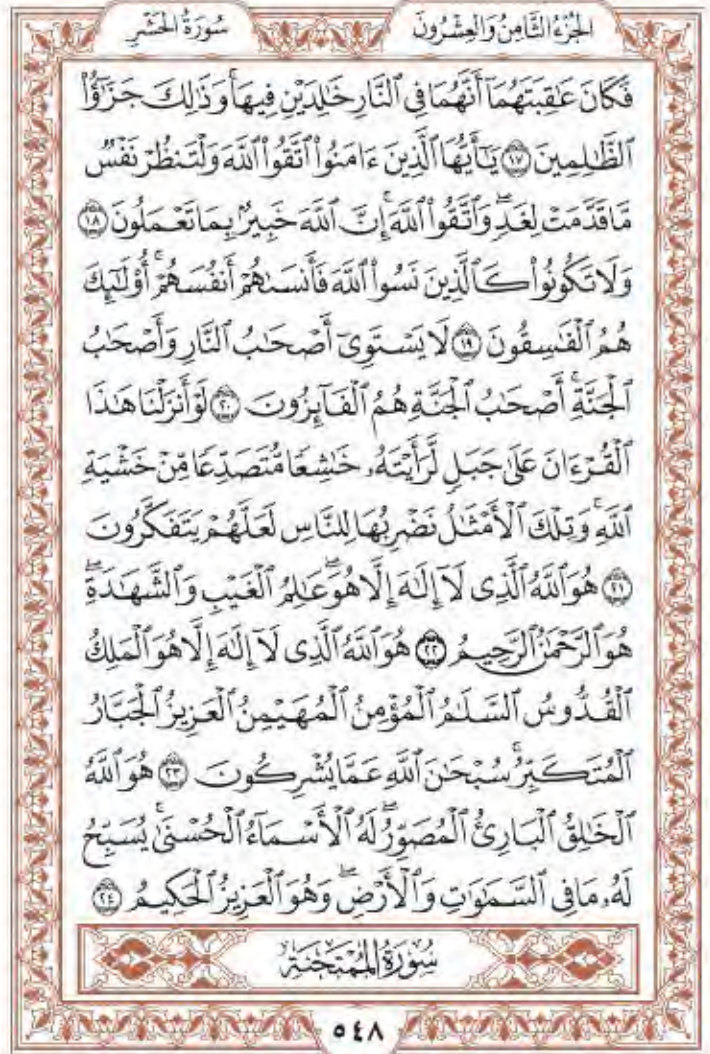 الجُزْءُ الثَّامِنُ وَالعِشْرُونَ سُورَةُ الحَشْرِ
فَكَانَ عَٰقِبَتَهُمَآ أَنَّهُمَا فِي ٱلنَّارِ خَٰلِدَيْنِ فِيهَاۚ وَذَٰلِكَ جَزَٰٓؤُاْ
ٱلظَّٰلِمِينَ ١٧ يَٰٓأَيُّهَا ٱلَّذِينَ ءَامَنُواْ ٱتَّقُواْ ٱللَّهَ وَلْتَنظُرْ نَفْسٌ
مَّا قَدَّمَتْ لِغَدٍۖ وَٱتَّقُواْ ٱللَّهَۚ إِنَّ ٱللَّهَ خَبِيرٌۢ بِمَا تَعْمَلُونَ ١٨
وَلَا تَكُونُواْ كَٱلَّذِينَ نَسُواْ ٱللَّهَ فَأَنسَىٰهُمْ أَنفُسَهُمْۚ أُوْلَٰٓئِكَ
هُمُ ٱلْفَٰسِقُونَ ١٩ لَا يَسْتَوِيٓ أَصْحَٰبُ ٱلنَّارِ وَأَصْحَٰبُ
ٱلْجَنَّةِۚ أَصْحَٰبُ ٱلْجَنَّةِ هُمُ ٱلْفَآئِزُونَ ٢٠ لَوْ أَنزَلْنَا هَٰذَا
ٱلْقُرْءَانَ عَلَىٰ جَبَلٍ لَّرَأَيْتَهُۥ خَٰشِعًا مُّتَصَدِّعًا مِّنْ خَشْيَةِ
ٱللَّهِۚ وَتِلْكَ ٱلْأَمْثَٰلُ نَضْرِبُهَا لِلنَّاسِ لَعَلَّهُمْ يَتَفَكَّرُونَ
٢١ هُوَ ٱللَّهُ ٱلَّذِي لَآ إِلَٰهَ إِلَّا هُوَۖ عَٰلِمُ ٱلْغَيْبِ وَٱلشَّهَٰدَةِۖ
هُوَ ٱلرَّحْمَٰنُ ٱلرَّحِيمُ ٢٢ هُوَ ٱللَّهُ ٱلَّذِي لَآ إِلَٰهَ إِلَّا هُوَ ٱلْمَلِكُ
ٱلْقُدُّوسُ ٱلسَّلَٰمُ ٱلْمُؤْمِنُ ٱلْمُهَيْمِنُ ٱلْعَزِيزُ ٱلْجَبَّارُ
ٱلْمُتَكَبِّرُۚ سُبْحَٰنَ ٱللَّهِ عَمَّا يُشْرِكُونَ ٢٣ هُوَ ٱللَّهُ
ٱلْخَٰلِقُ ٱلْبَارِئُ ٱلْمُصَوِّرُۖ لَهُ ٱلْأَسْمَآءُ ٱلْحُسْنَىٰۚ يُسَبِّحُ
لَهُۥ مَا فِي ٱلسَّمَٰوَٰتِ وَٱلْأَرْضِۖ وَهُوَ ٱلْعَزِيزُ ٱلْحَكِيمُ ٢٤
سُورَةُ المُمْتَحَنَةِ
٥٤٨